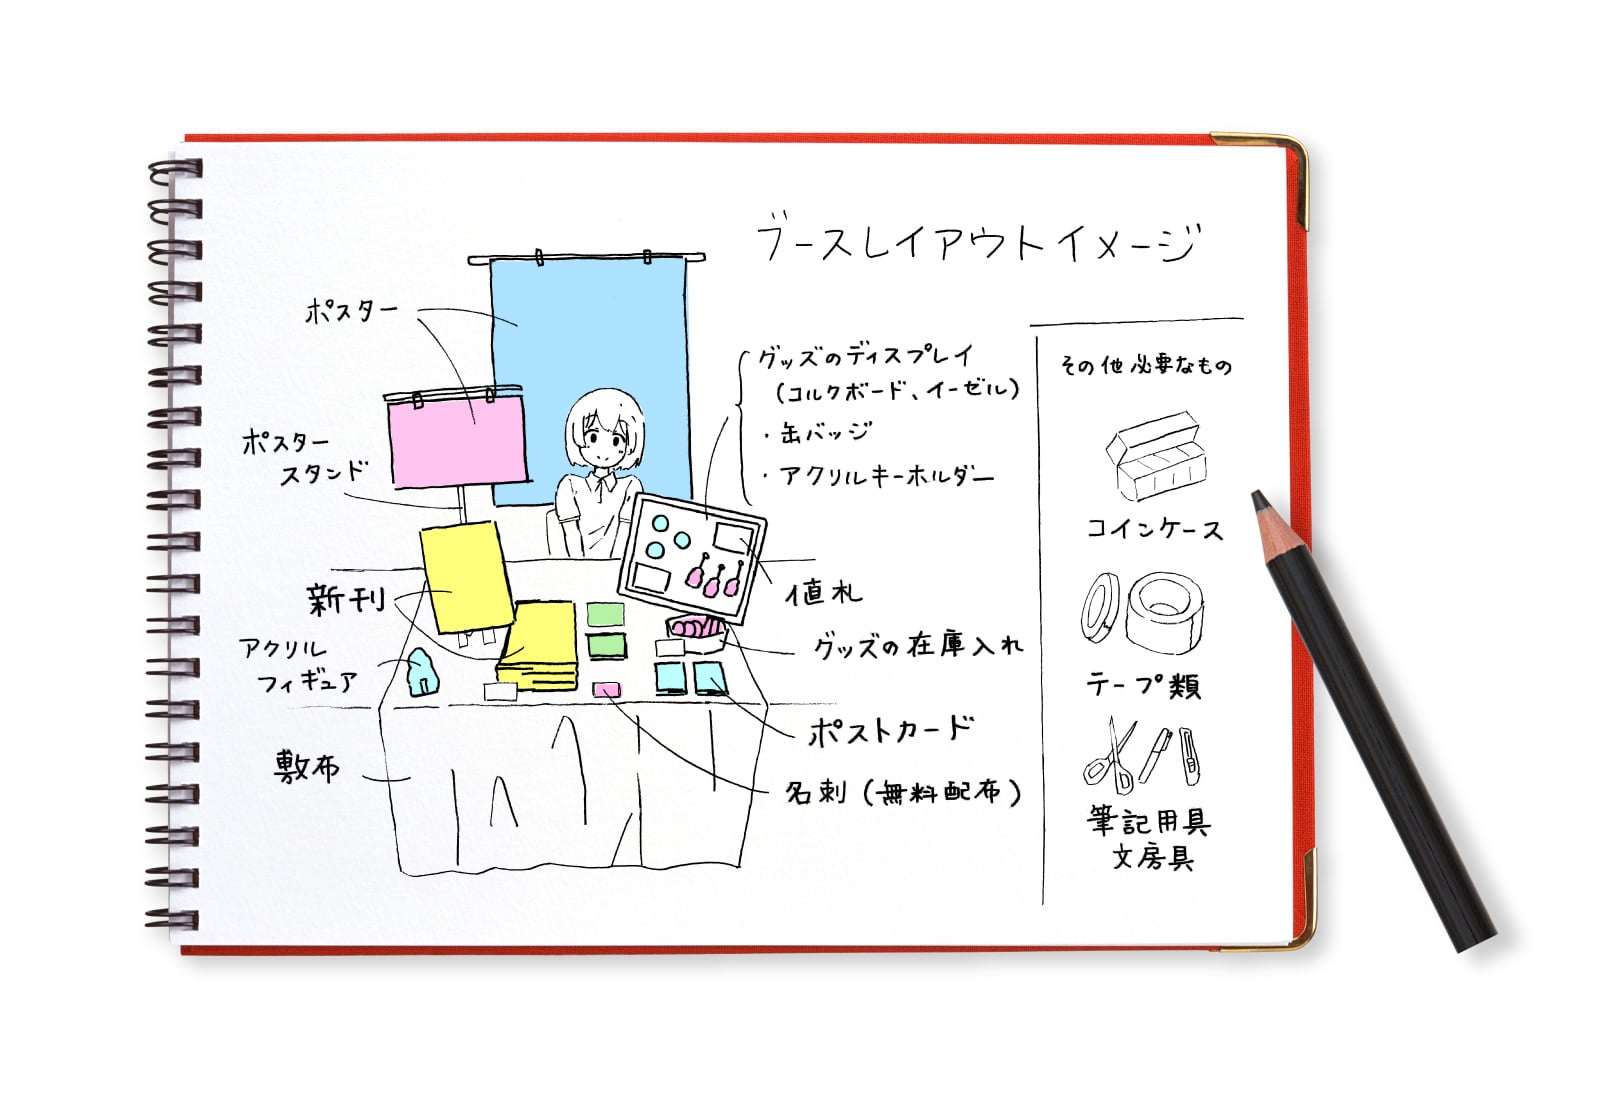 ブースレイアウトイメージ
ポスター
ポスター
スタンド
新刊
アクリル
フィギュア
敷布
グッズのディスプレイ
(コルクボード、イーゼル)
・缶バッジ
・アクリルキーホルダー
値札
グッズの在庫入れ
ポストカード
名刺(無料配布)
その他必要なもの
コインケース
テープ類
筆記用具
文房具